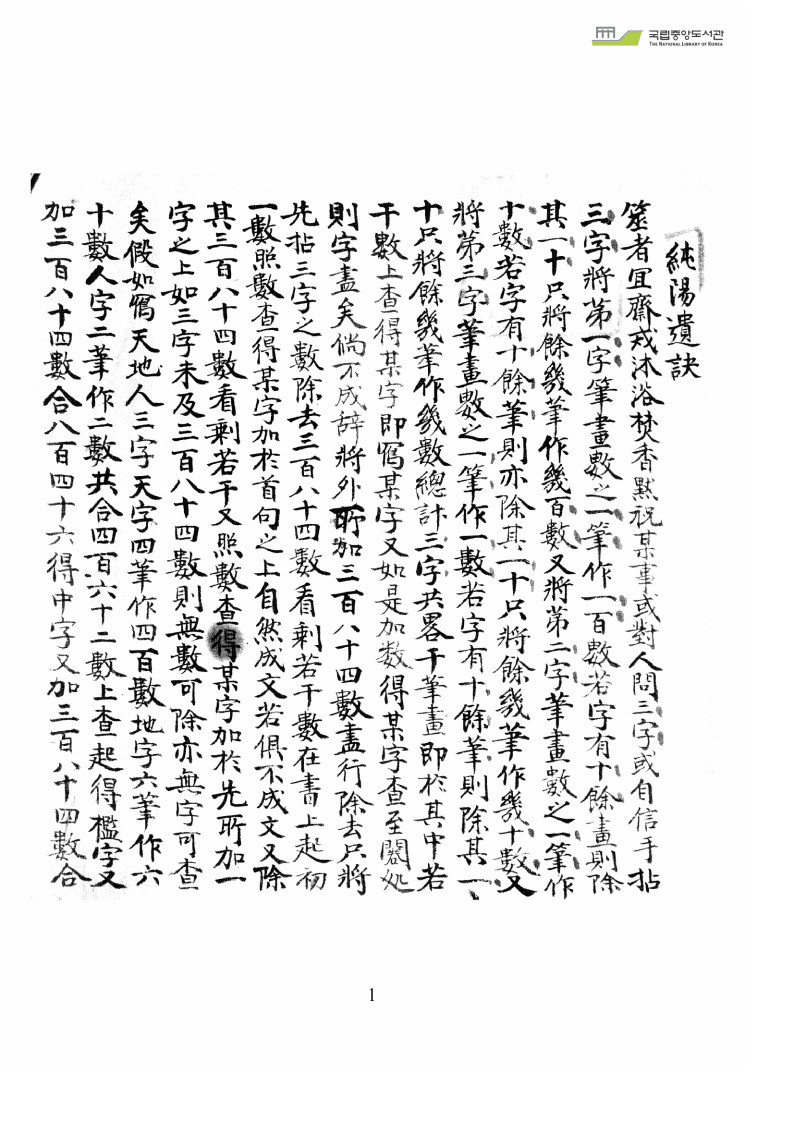 국립중앙도서관
THE NATIONAL LIBRARY OF KOREA
純陽遺訣
筮者宜齋戒沐浴焚香黙祝某事或對人問三字或自信手拈
三字將第一字筆畫數之一筆作一百數若字有十餘畫則除
其一十只將餘幾筆作幾百數又將第二字筆畫數之一筆作
十數若字有十餘筆則亦除其一十只將餘幾筆作幾十數又
將第三字筆畫數之一筆作一數若字有十餘筆則除其一
十只將餘幾筆作幾數總計三字共畧干筆畫即於其中若
干數上查得某字即寫某字又如是加数得某字查至閣処
則字盡矣倘不成辞將外所加三百八十四數盡行除去只將
先拈三字之數除去三百八十四數看剩若干數在書上起初
一數照數查得某字加於首句之上自然成文若俱不成文又除
其三百八十四數看剩若干又照數查得某字加於先所加一
字之上如三字未及三百八十四數則無數可除亦無字可查
矣假如寫天地人三字天字四筆作四百數地字六筆作六
十數人字二筆作二數共合四百六十二數上查起得檻字又
加三百八十四數合八百四十六得中字又加三百八十四數合
1